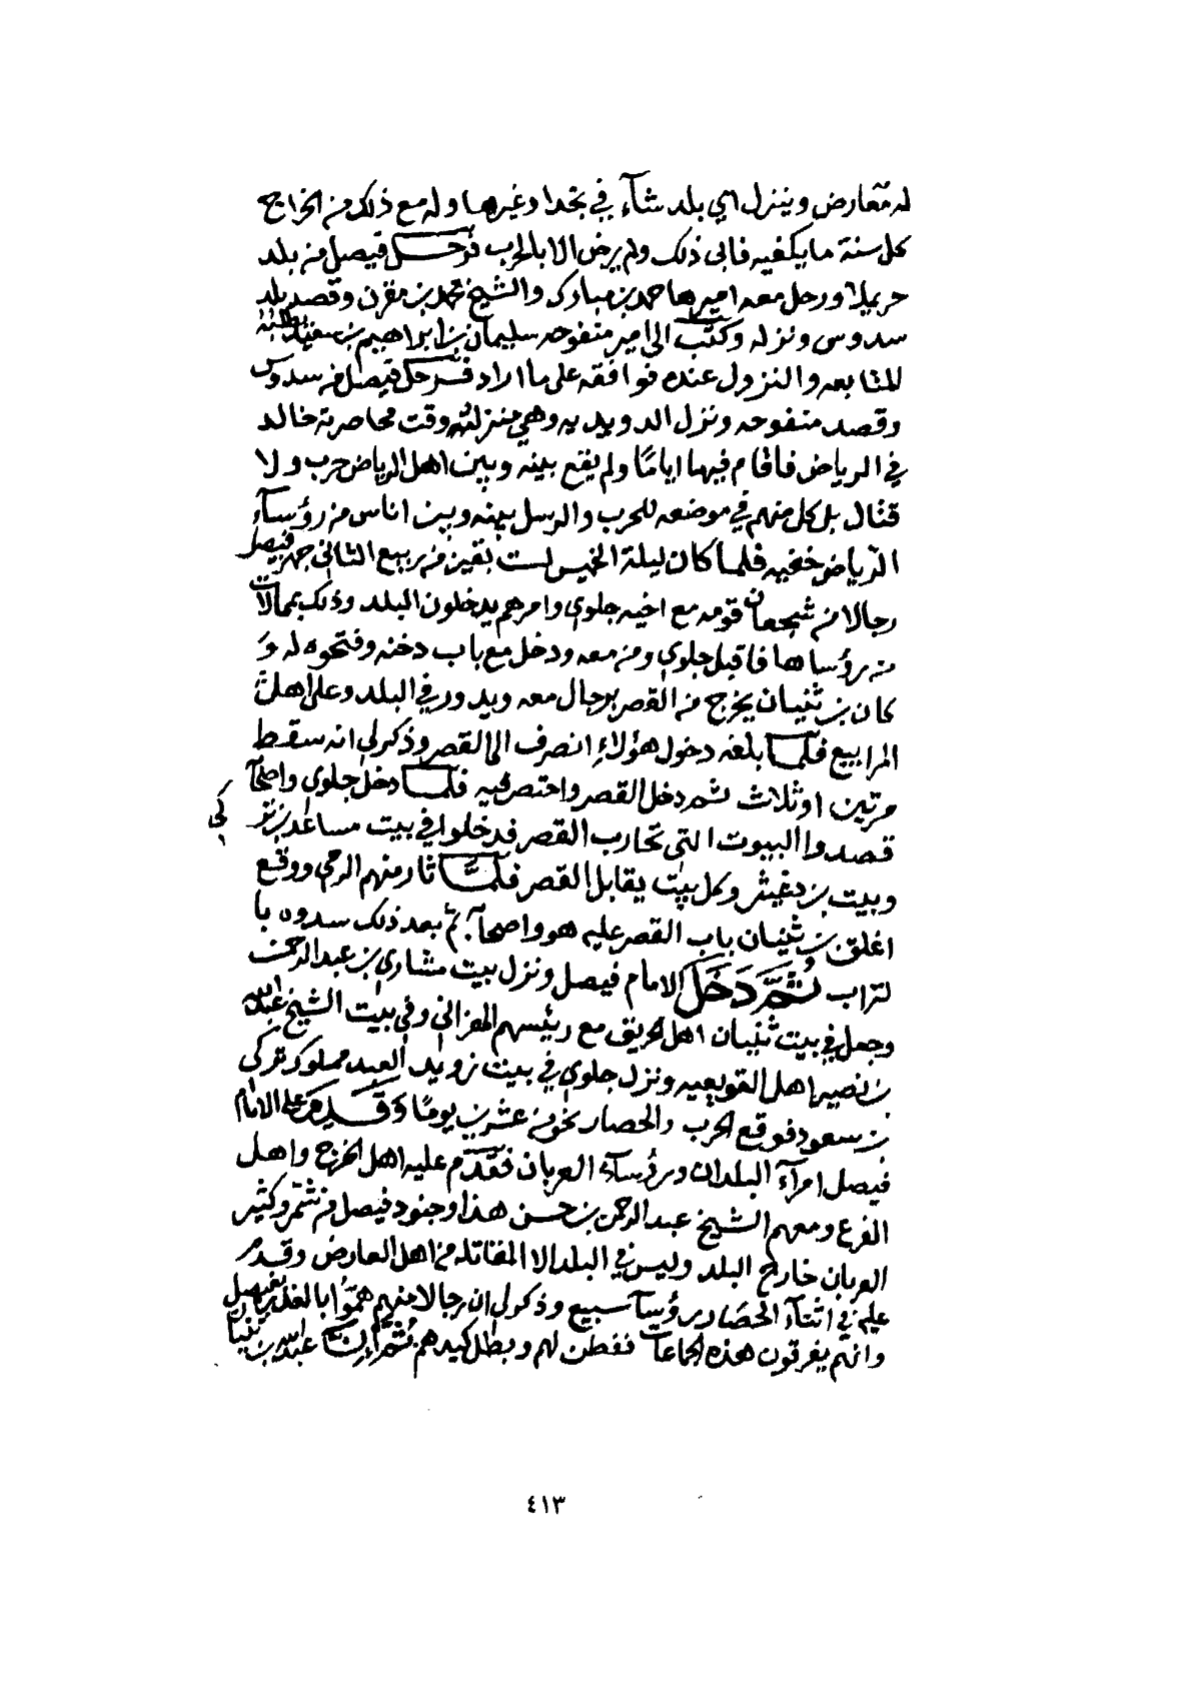 له معارض وينزل اي بلد شآء في نجد او غيرها وله مع ذلك من الخراج
كل سنة ما يكفيه فابى ذلك ولم يرض الا بالحرب فرحل فيصل من بلد
حريملا ورحل معه اميرها حمد بن مبارك والشيخ محمد بن مقرن وقصد بلد
سدوس ونزله وكتب الى امير منفوحه سليمان بن ابراهيم بن سعيد يطلبه
للمتابعه والنزول عنده فوافقه على ما اراد فرحل فيصل من سدوس
وقصد منفوحه ونزل الدويديه وهي منزلته وقت محاصرته خالد
في الرياض فاقام فيها اياما ولم يقع بينه وبين اهل الرياض حرب ولا
قتال بل كل منهم في موضعه للحرب والرسل بينه وبين اناس من رؤسآء
الرياض خفيه فلما كان ليلة الخميس لست بقين من ربيع الثاني جهز فيصل
رجالا من شجعان قومه مع اخيه جلوي وامرهم يدخلون البلد وذلك بممالات
من رؤساها فاقبل جلوي ومن معه ودخل مع باب دخنه وفتحوه له و
كان بن ثنيان يخرج من القصر برجال معه ويدور في البلد وعلى اهل
المرابيع فلما بلغه دخول هؤلاء انصرف الى القصر وذكر لي انه سقط
مرتين او ثلاث ثم دخل القصر واحتصر فيه فلما دخل جلوي واصحآ
قصدوا البيوت التي تحارب القصر فدخلوا في بيت مساعد بن تر كي
وبيت بن دغيثر وكل بيت يقابل القصر فلما ثار منهم الرمي ووقع
اغلق بن ثنيان باب القصر عليه هو واصحآبه ثم بعد ذلك سدوه با
لتراب ثم دخل الامام فيصل ونزل بيت مشاري بن عبد الرحمن
وجعل في بيت ثنيان اهل الحريق مع رئيسهم الهزاني وفي بيت الشيخ عبد الله
بن نصير اهل القويعيه ونزل جلوي في بيت زويد العبد مملوك تركي
بن سعود فوقع الحرب والحصار نحو من عشرين يوما وقدم على الامام
فيصل امرآء البلدان ورؤسآء العربان فقدم عليه اهل الخرج واهل
الفرع ومعهم الشيخ عبد الرحمن بن حسن هذا وجنود فيصل من شمر وكثير
العربان خارج البلد وليس في البلد الا المقاتله من اهل العارض وقدم
عليه في اثنآء الحصار رؤسآ سبيع وذكر لي ان رجالا منهم هموا بالغدر بفيصل
وانهم يفرقون هذه الجماعات ففطن لهم وبطل كيدهم ثم ان عبد الله بن ثنيان
٤١٣